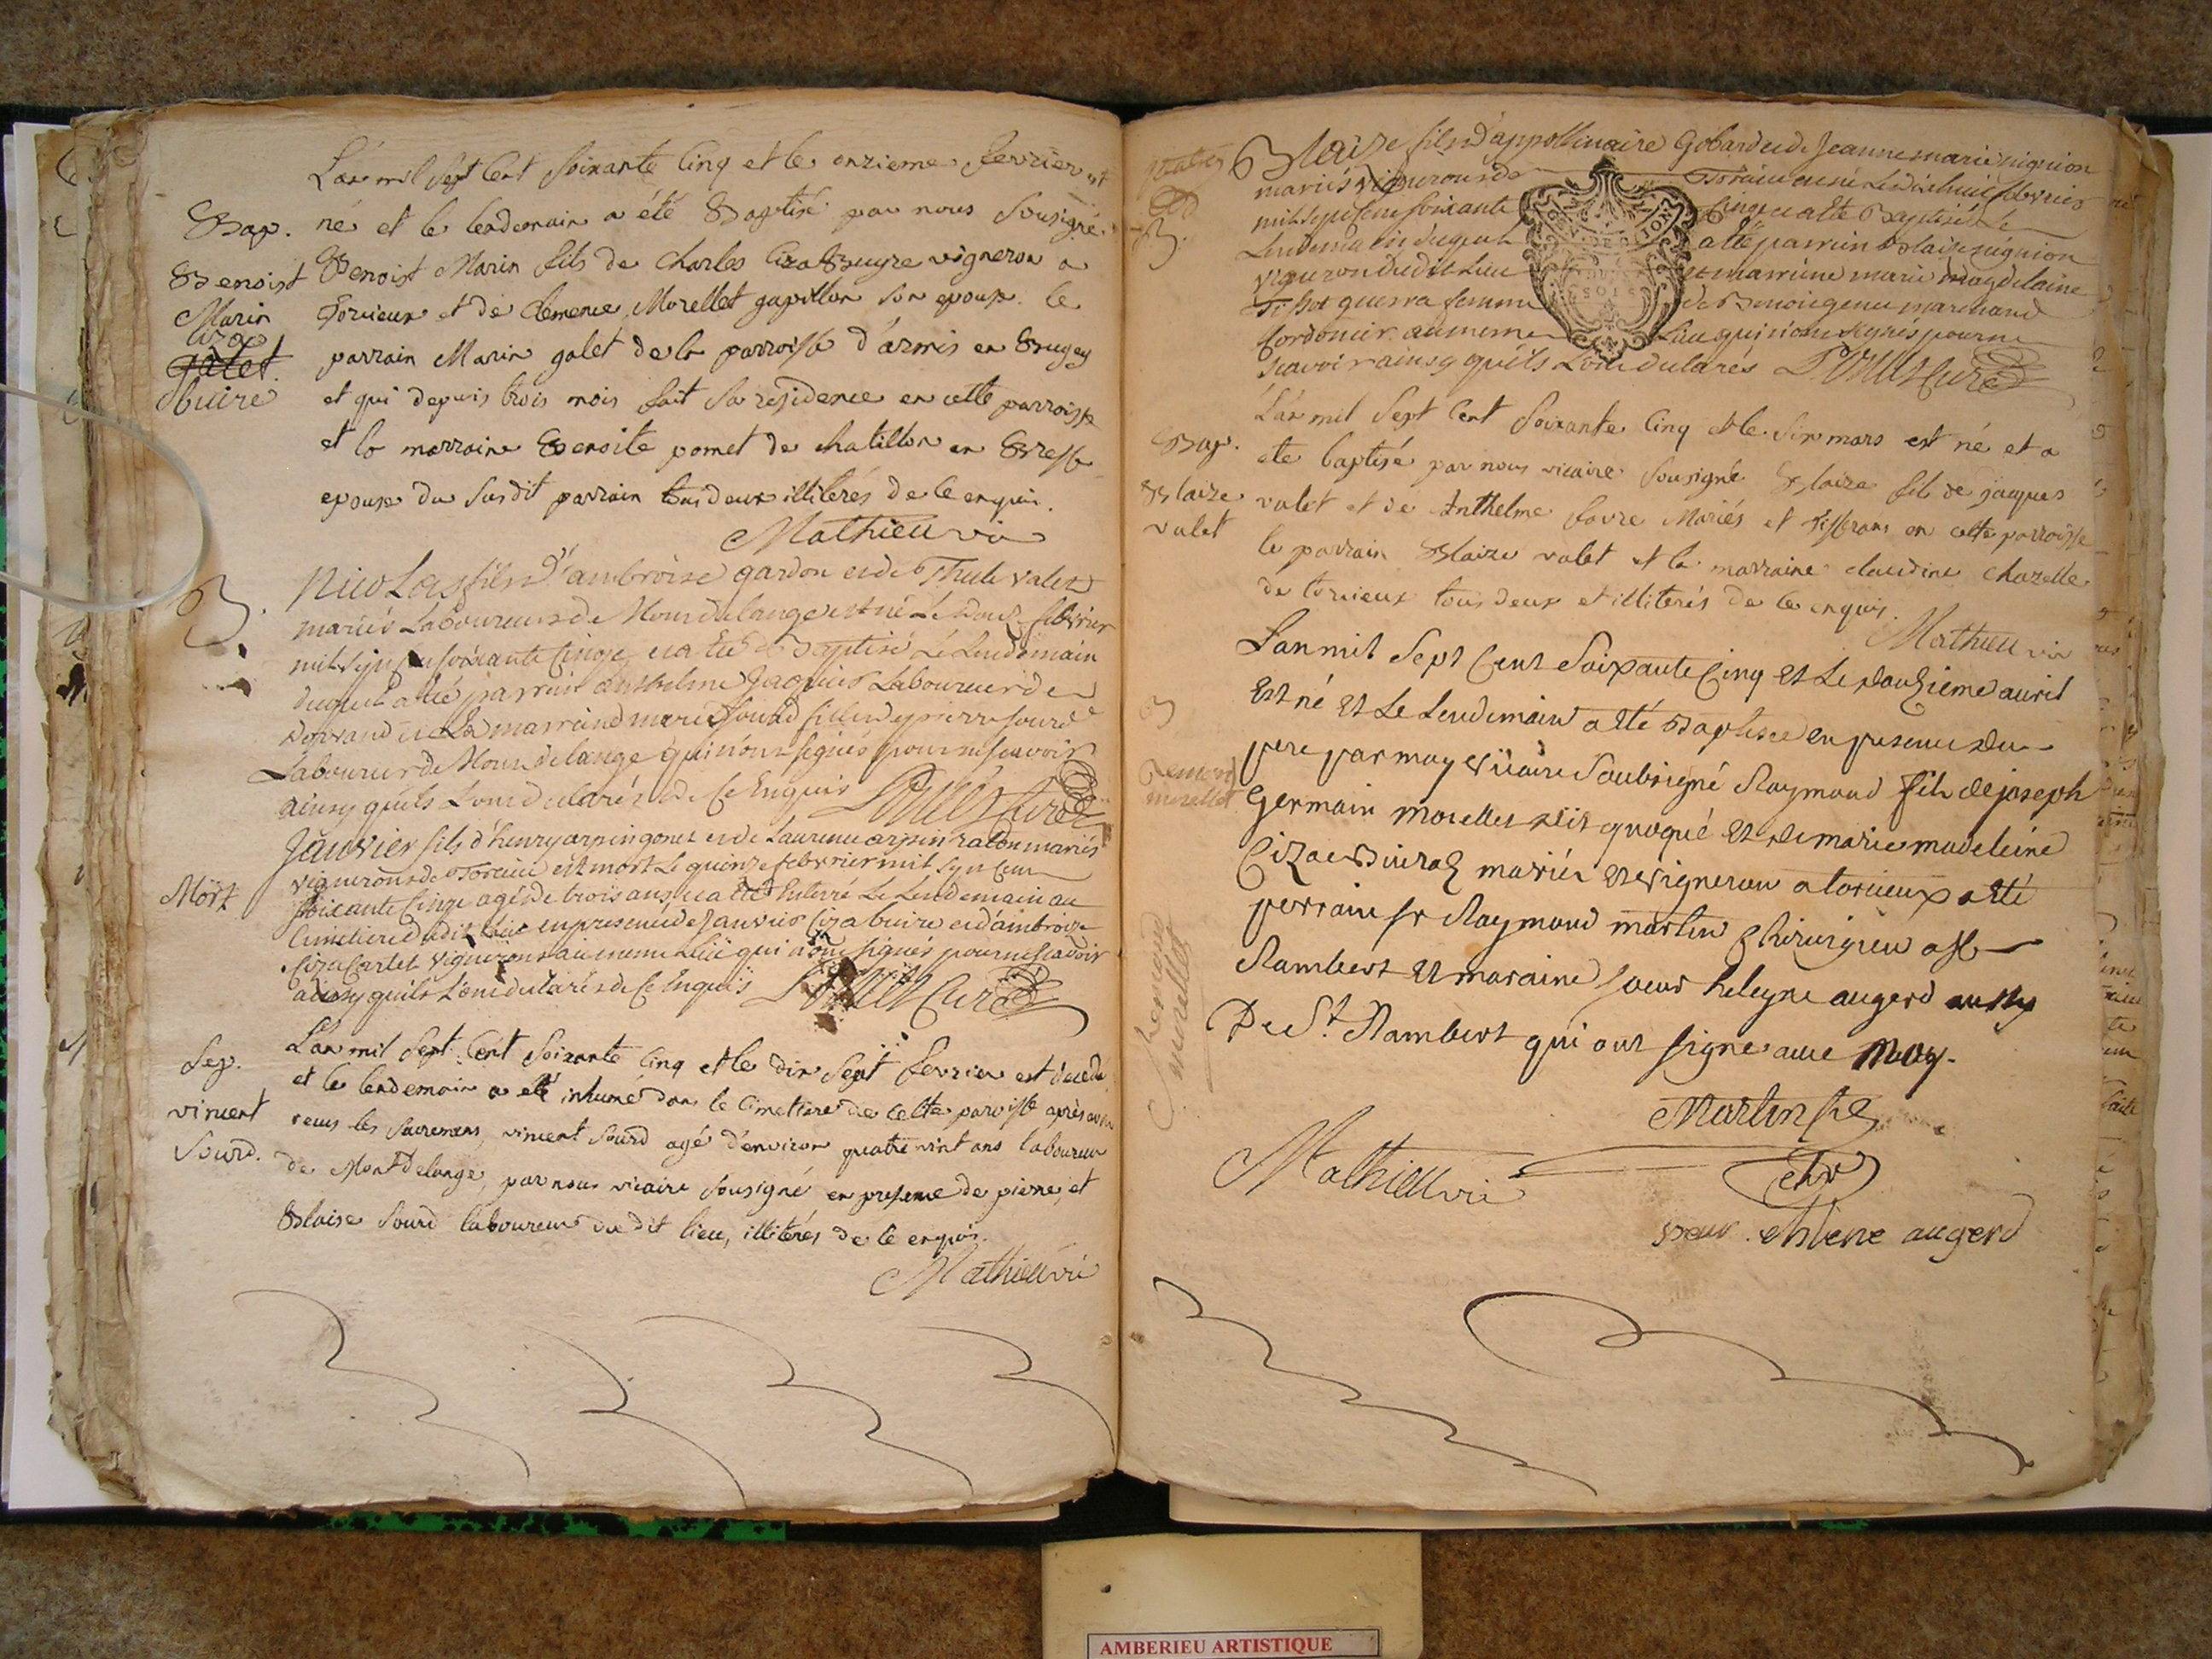 L'an mil sept cent soixante cinq et le onzieme fevrier est
Bap. né et le lendemain a été Baptisé par nous sousigné
Benoist Marin Ciza galet buire
Benoist Marin fils de Charles Ciza Buyre vigneron a
Torcieux et de Clemence Morellet gapillon son epouse le
parrain Marin galet de la parroisse d'armis en Bugey
et qui depuis trois mois fait sa residence en cette parroisse
et la marraine Benoite pomet de chatillon en Bresse
epouse du susdit parrain tous deux illiterés de ce enquis.
Mathieu vic
B.
Nicolas fils d'ambroise gardon et de Thule valet
mariés Laboureurs de Mondelange est né Le douze febvrier
mil sept cent soixante Cinq et a été Baptisé Le Lendemain
duquel a été parrain anthelme Jaquier Laboureur de
et La marraine marie sourd fille de pierre sourd
Laboureur de Mondelange qui n'ont signés pour ne scavoir
ainsy qu'ils L'ont declarés de Ce Enquis curé
Mort
Janvier fils d'henry arpin gonet et de Laurence arpin raton mariés
vignerons de Torcieu est mort Le quinze febvrier mil sept Cent
soixante Cinq agé de trois ans et a été Enterré Le Lendemain au
Cimetiere dudit Lieu en presence de Janvier Ciza buire et d'ambroize
Ciza Carlet vignerons au meme Lieu qui n'ont signés pour ne scavoir
ainsy qu'ils L'ont declarés de Ce Enquis curé
Sep. vincent Sourd.
L'an mil sept cent soixante cinq et le dix sept fevrier est decedé
et le lendemain a eté inhumé dans le cimetiere de cette parroisse après avoir
reçus les sacremens, vincent sourd agé d'environ quatre vint ans laboureur
de Montdelange, par nous vicaire sousigné en presence de pierre, et
Blaise sourd laboureur du dit lieu, illiterés de ce enquis.
Mathieu vic
B.
Blaize fils d'appollinaire Gobard et de Jeanne marie nignion
mariés vignerons de Torcieu est né Le dixhuit febvrier
mil sept cent soixante Cinq et a été Baptisé Le
Lendemain duquel a été parrain Blaize nignion
vigneron dudit Lieu et marraine marie magdelaine
Tibot guerra femme de Benoit genu marchand
Cordonnier au meme Lieu qui n'ont signés pour ne
scavoir ainsy qu'ils L'ont declarés curé
Bap. Blaize valet
L'an mil sept cent soixante cinq et le six mars est né et a
ete baptisé par nous vicaire sousigné Blaize fils de jaques
valet et de Anthelme favre Mariés et Tisserans en cette parroisse
le parrain Blaize valet et la marraine claudine chazelle
de torcieux tous deux et illiterés de ce enquis.
Mathieu vic
B
Remond morellet
Lan mil sept cent soixante cinq et Le douzieme avril
est né et Le Lendemain a été Baptisé en presence du
pere par moy vicaire soubsigné Raymond fils de joseph
Germain morellet dit quoqué et de marie madeleine
Ciza Buiraz mariés et vigneron a torcieux a été
perrain sr Raymond martin chirurgien a st
Rambert et maraine soeur heleyne augerd aussy
De St. Rambert qui ont signe avec moy.
Remond morellet
Martin fils
chr
Mathieu vic
soeur helene augerd
AMBERIEU ARTISTIQUE